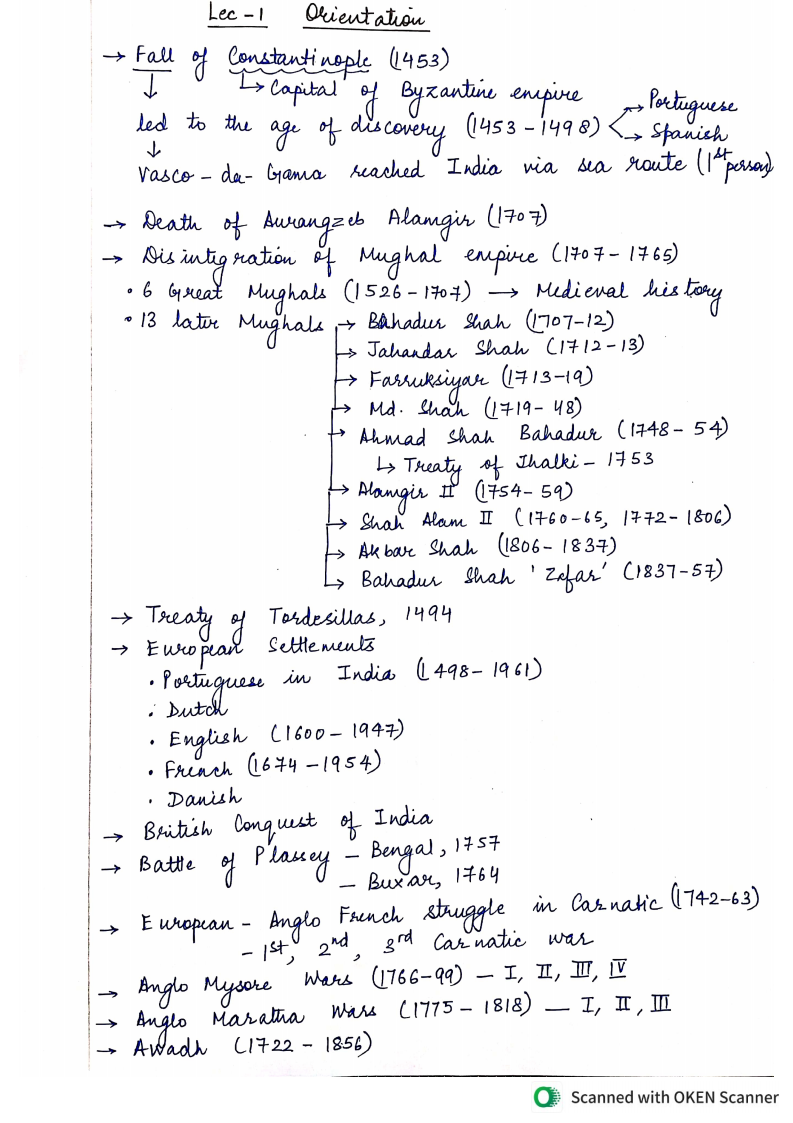 Lec-1 Orientation
→ Fall of Constantinople (1453)
↓ ↳ Capital of Byzantine empire
led to the age of discovery (1453-1498) → Portuguese
→ Spanish
↓
Vasco-da-Gama reached India via sea route (1st person)
→ Death of Aurangzeb Alamgir (1707)
→ Disintigration of Mughal empire (1707-1765)
• 6 Great Mughals (1526-1707) → Medieval history
• 13 later Mughals → Bahadur Shah (1707-12)
→ Jahandar Shah (1712-13)
→ Farruksiyar (1713-19)
→ Md. Shah (1719-48)
→ Ahmad Shah Bahadur (1748-54)
↳ Treaty of Jhalki - 1753
→ Alamgir II (1754-59)
→ Shah Alam II (1760-65, 1772-1806)
→ Akbar Shah (1806-1837)
→ Bahadur Shah 'Zafar' (1837-57)
→ Treaty of Tordesillas, 1494
→ European Settlements
• Portuguese in India (1498-1961)
• Dutch
• English (1600-1947)
• French (1674-1954)
• Danish
→ British Conquest of India
→ Battle of Plassey - Bengal, 1757
- Buxar, 1764
→ European - Anglo French struggle in Carnatic (1742-63)
- 1st, 2nd, 3rd Carnatic war
→ Anglo Mysore Wars (1766-99) - I, II, III, IV
→ Anglo Maratha Wars (1775-1818) - I, II, III
→ Awadh (1722-1856)
Scanned with OKEN Scanner